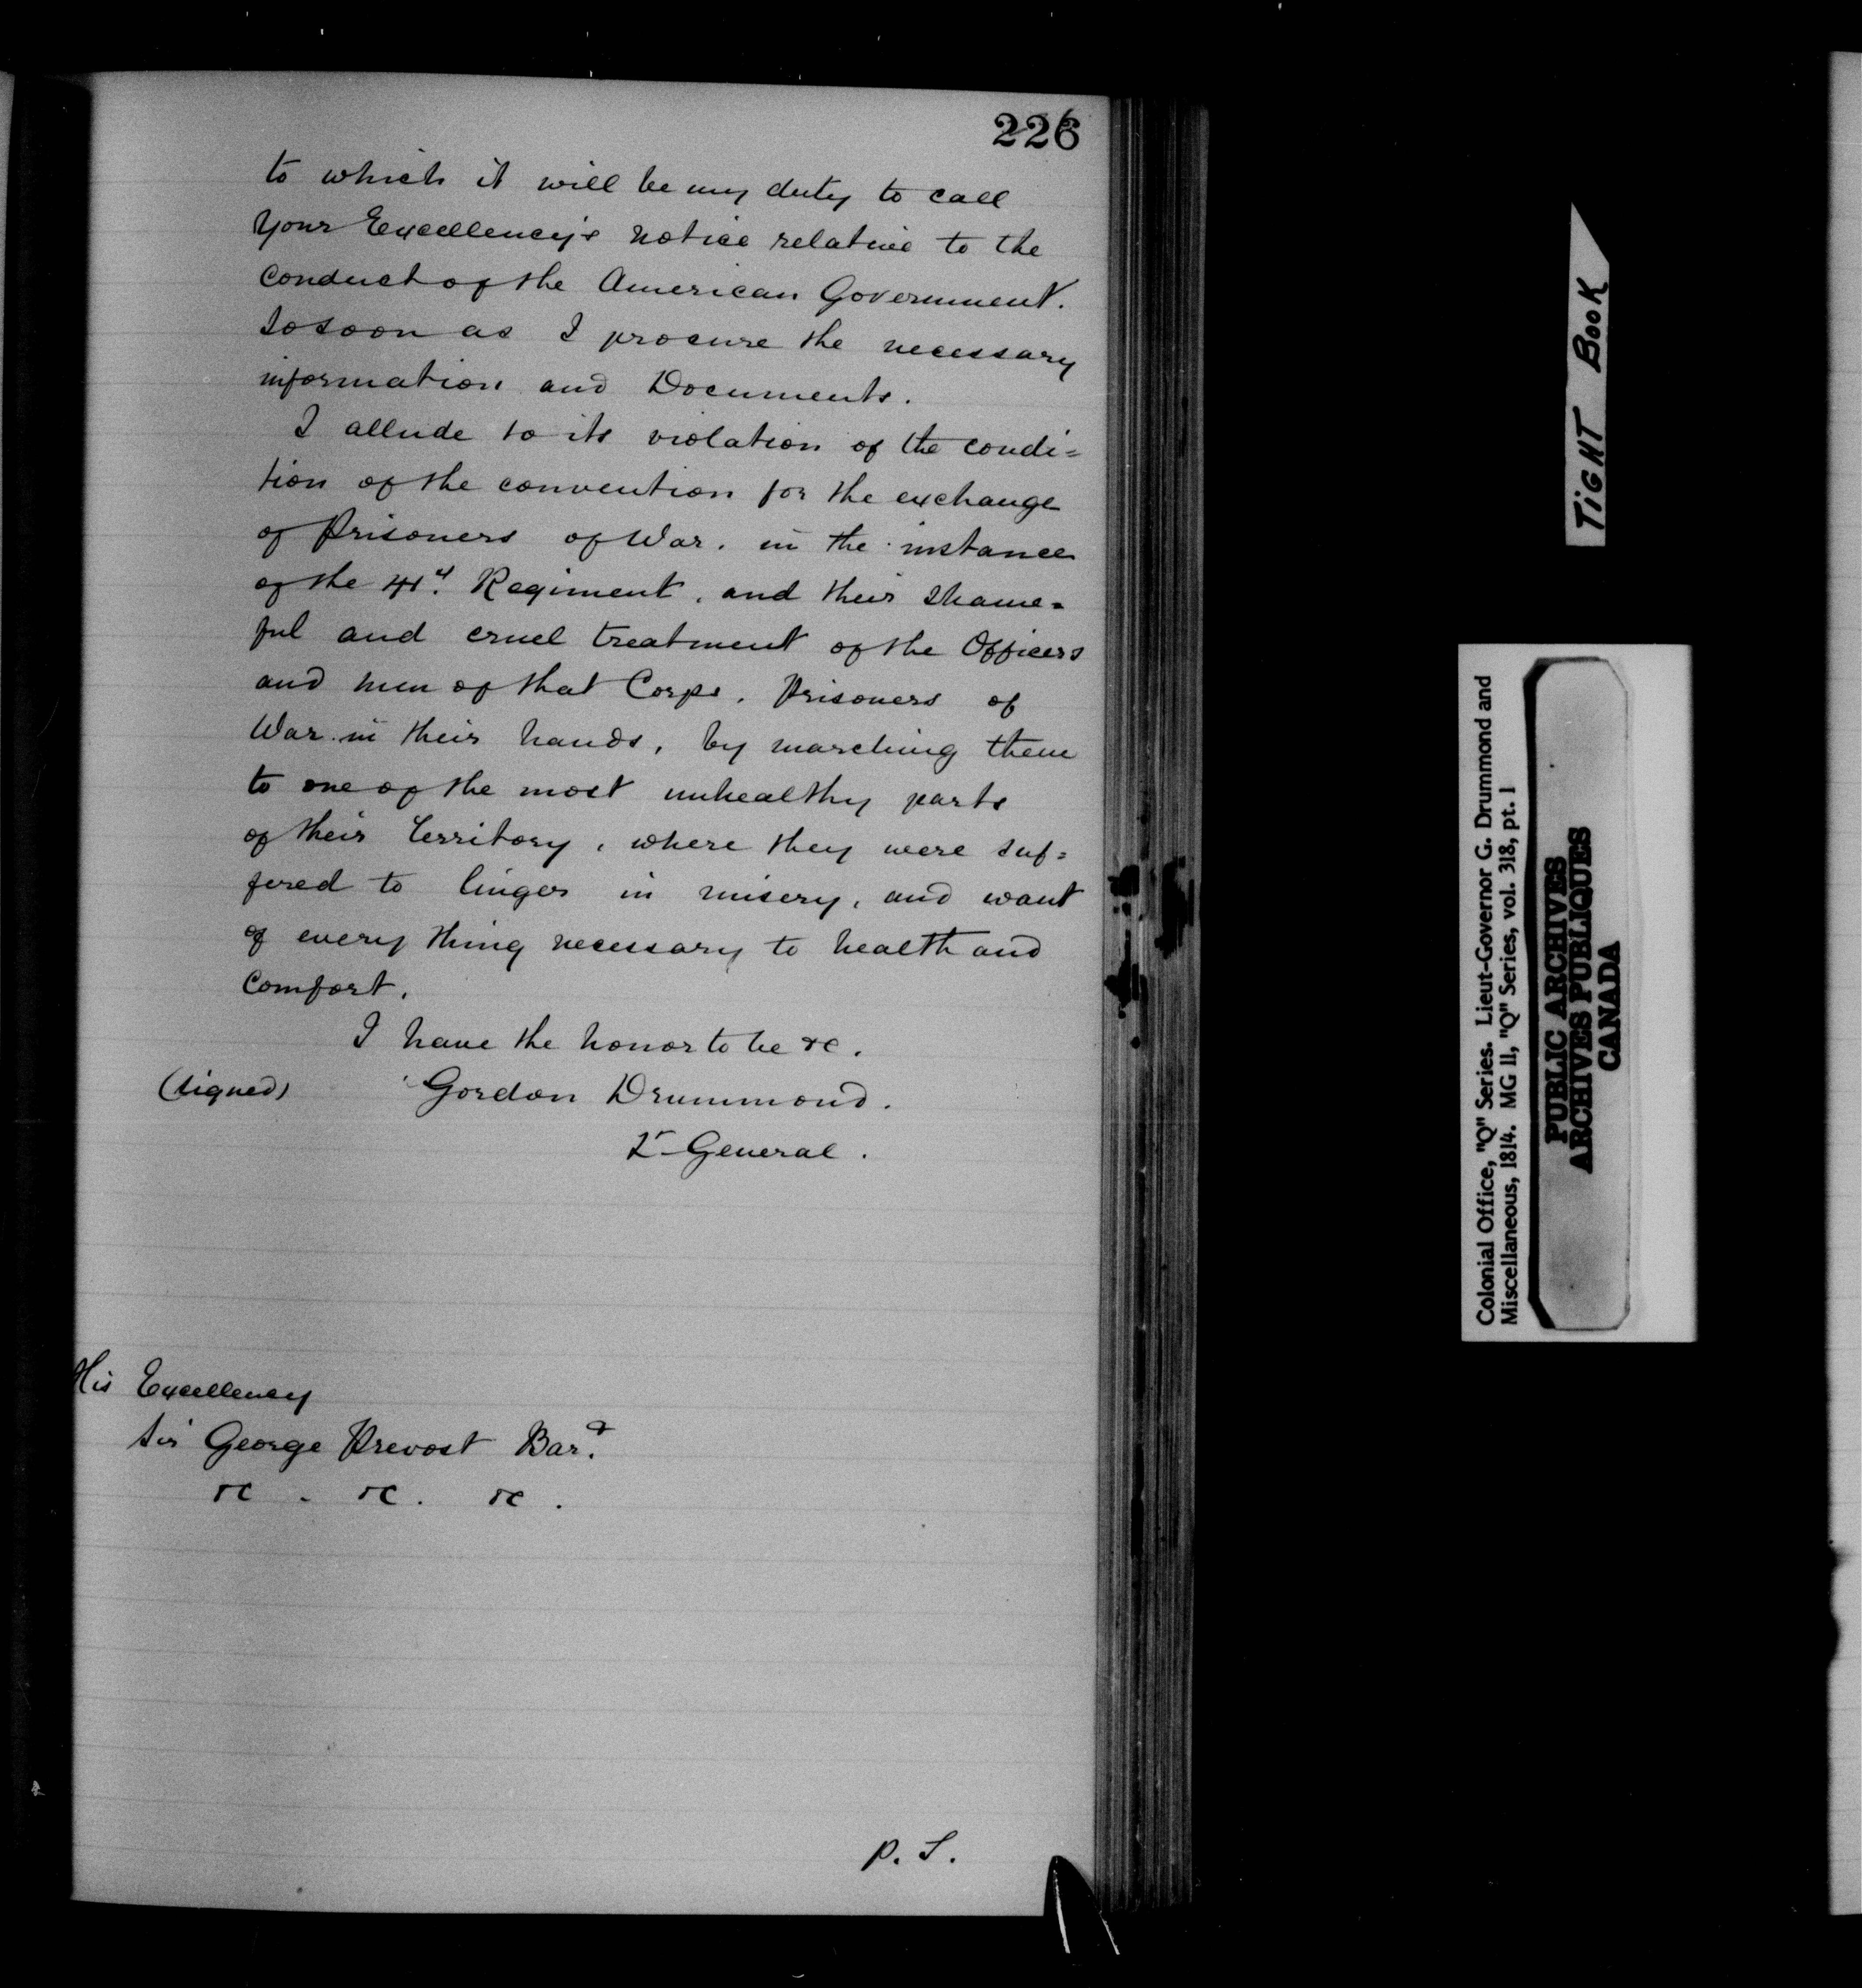 226
to which it will be my duty to call
Your Excellency's notice relative to the
conduct of the American Government.
so soon as I procure the necessary
information and Documents.
I allude to its violation of the condi=
tion of the convention for the exchange
of Prisoners of War. in the instance
of the 41st. Regiment, and their shame=
ful and cruel treatment of the Officers
and men of that Corps. Prisoners of
War in their hands, by marching them
to one of the most unhealthy parts
of their Territory, where they were suf=
fered to linger in misery, and want
of every thing necessary to health and
comfort.
I have the honor to be &c.
(signed) Gordon Drummond.
Lt General.
His Excellency
Sir George Prevost Bart.
&c. &c. &c.
P. S.
TIGHT BOOK
Colonial Office, "Q" Series. Lieut-Governor G. Drummond and
Miscellaneous, 1814. MG 11, "Q" Series, vol. 318, pt. 1
PUBLIC ARCHIVES
ARCHIVES PUBLIQUES
CANADA